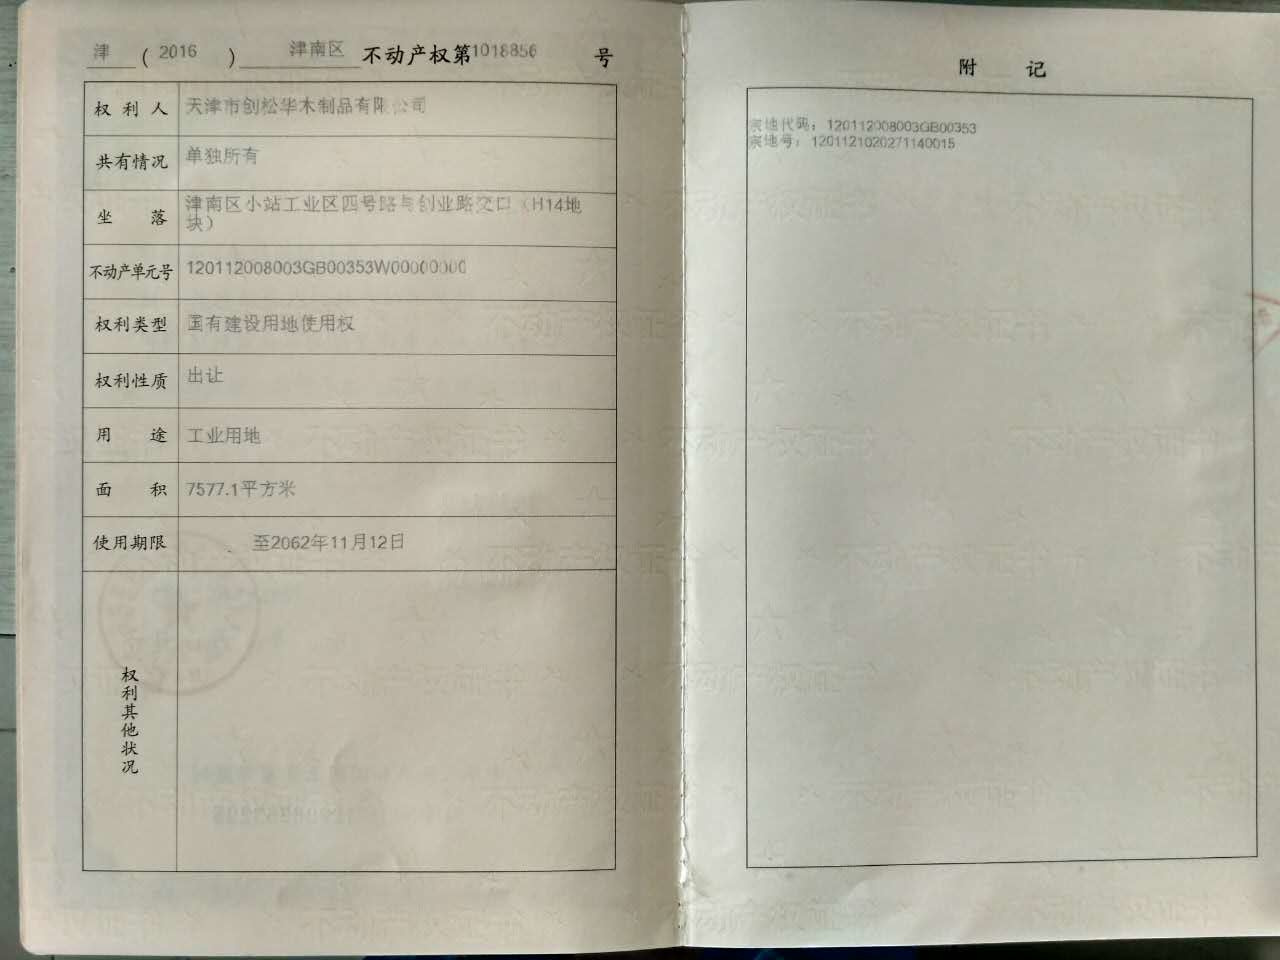 津 ( 2016 ) 津南区 不动产权第1018856 号
权利人 天津市创松华木制品有限公司
共有情况 单独所有
坐落 津南区小站工业区四号路与创业路交口（H14地
块）
不动产单元号 120112008003GB00353W00000000
权利类型 国有建设用地使用权
权利性质 出让
用途 工业用地
面积 7577.1平方米
使用期限 至2062年11月12日
权利其他状况
附记
宗地代码：120112008003GB00353
宗地号：1201121020271140015